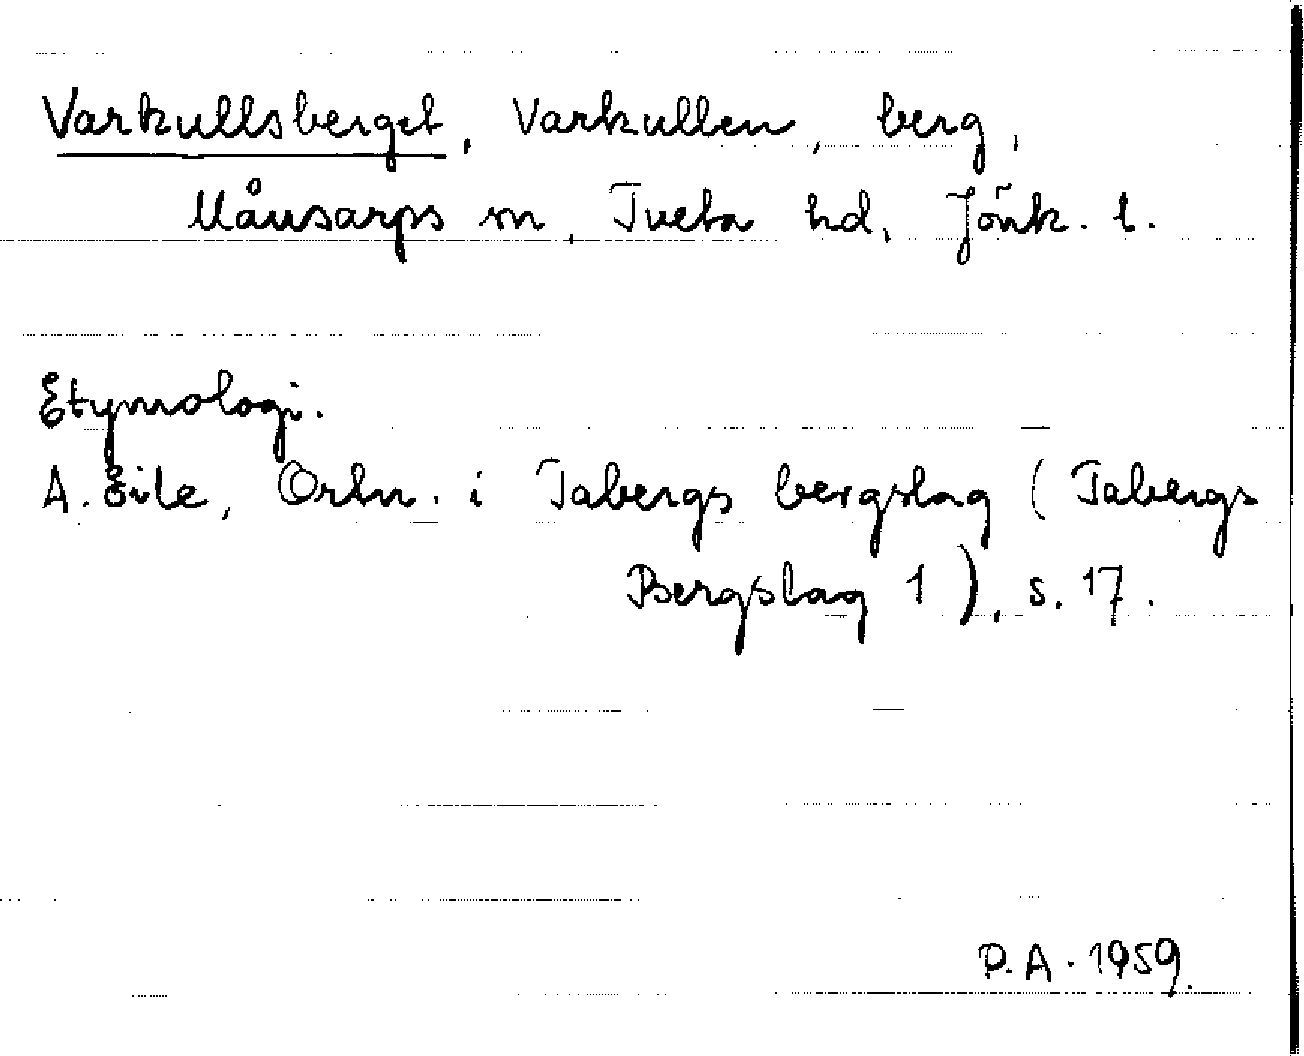 Varkullsberget, Varkullen, berg,
Månsarps sn, Tveta hd, Jönk. l.
Etymologi.
A. Eile, Ortn. i Tabergs bergslag (Tabergs
Bergslag 1), s. 17.
P. A. 1959.